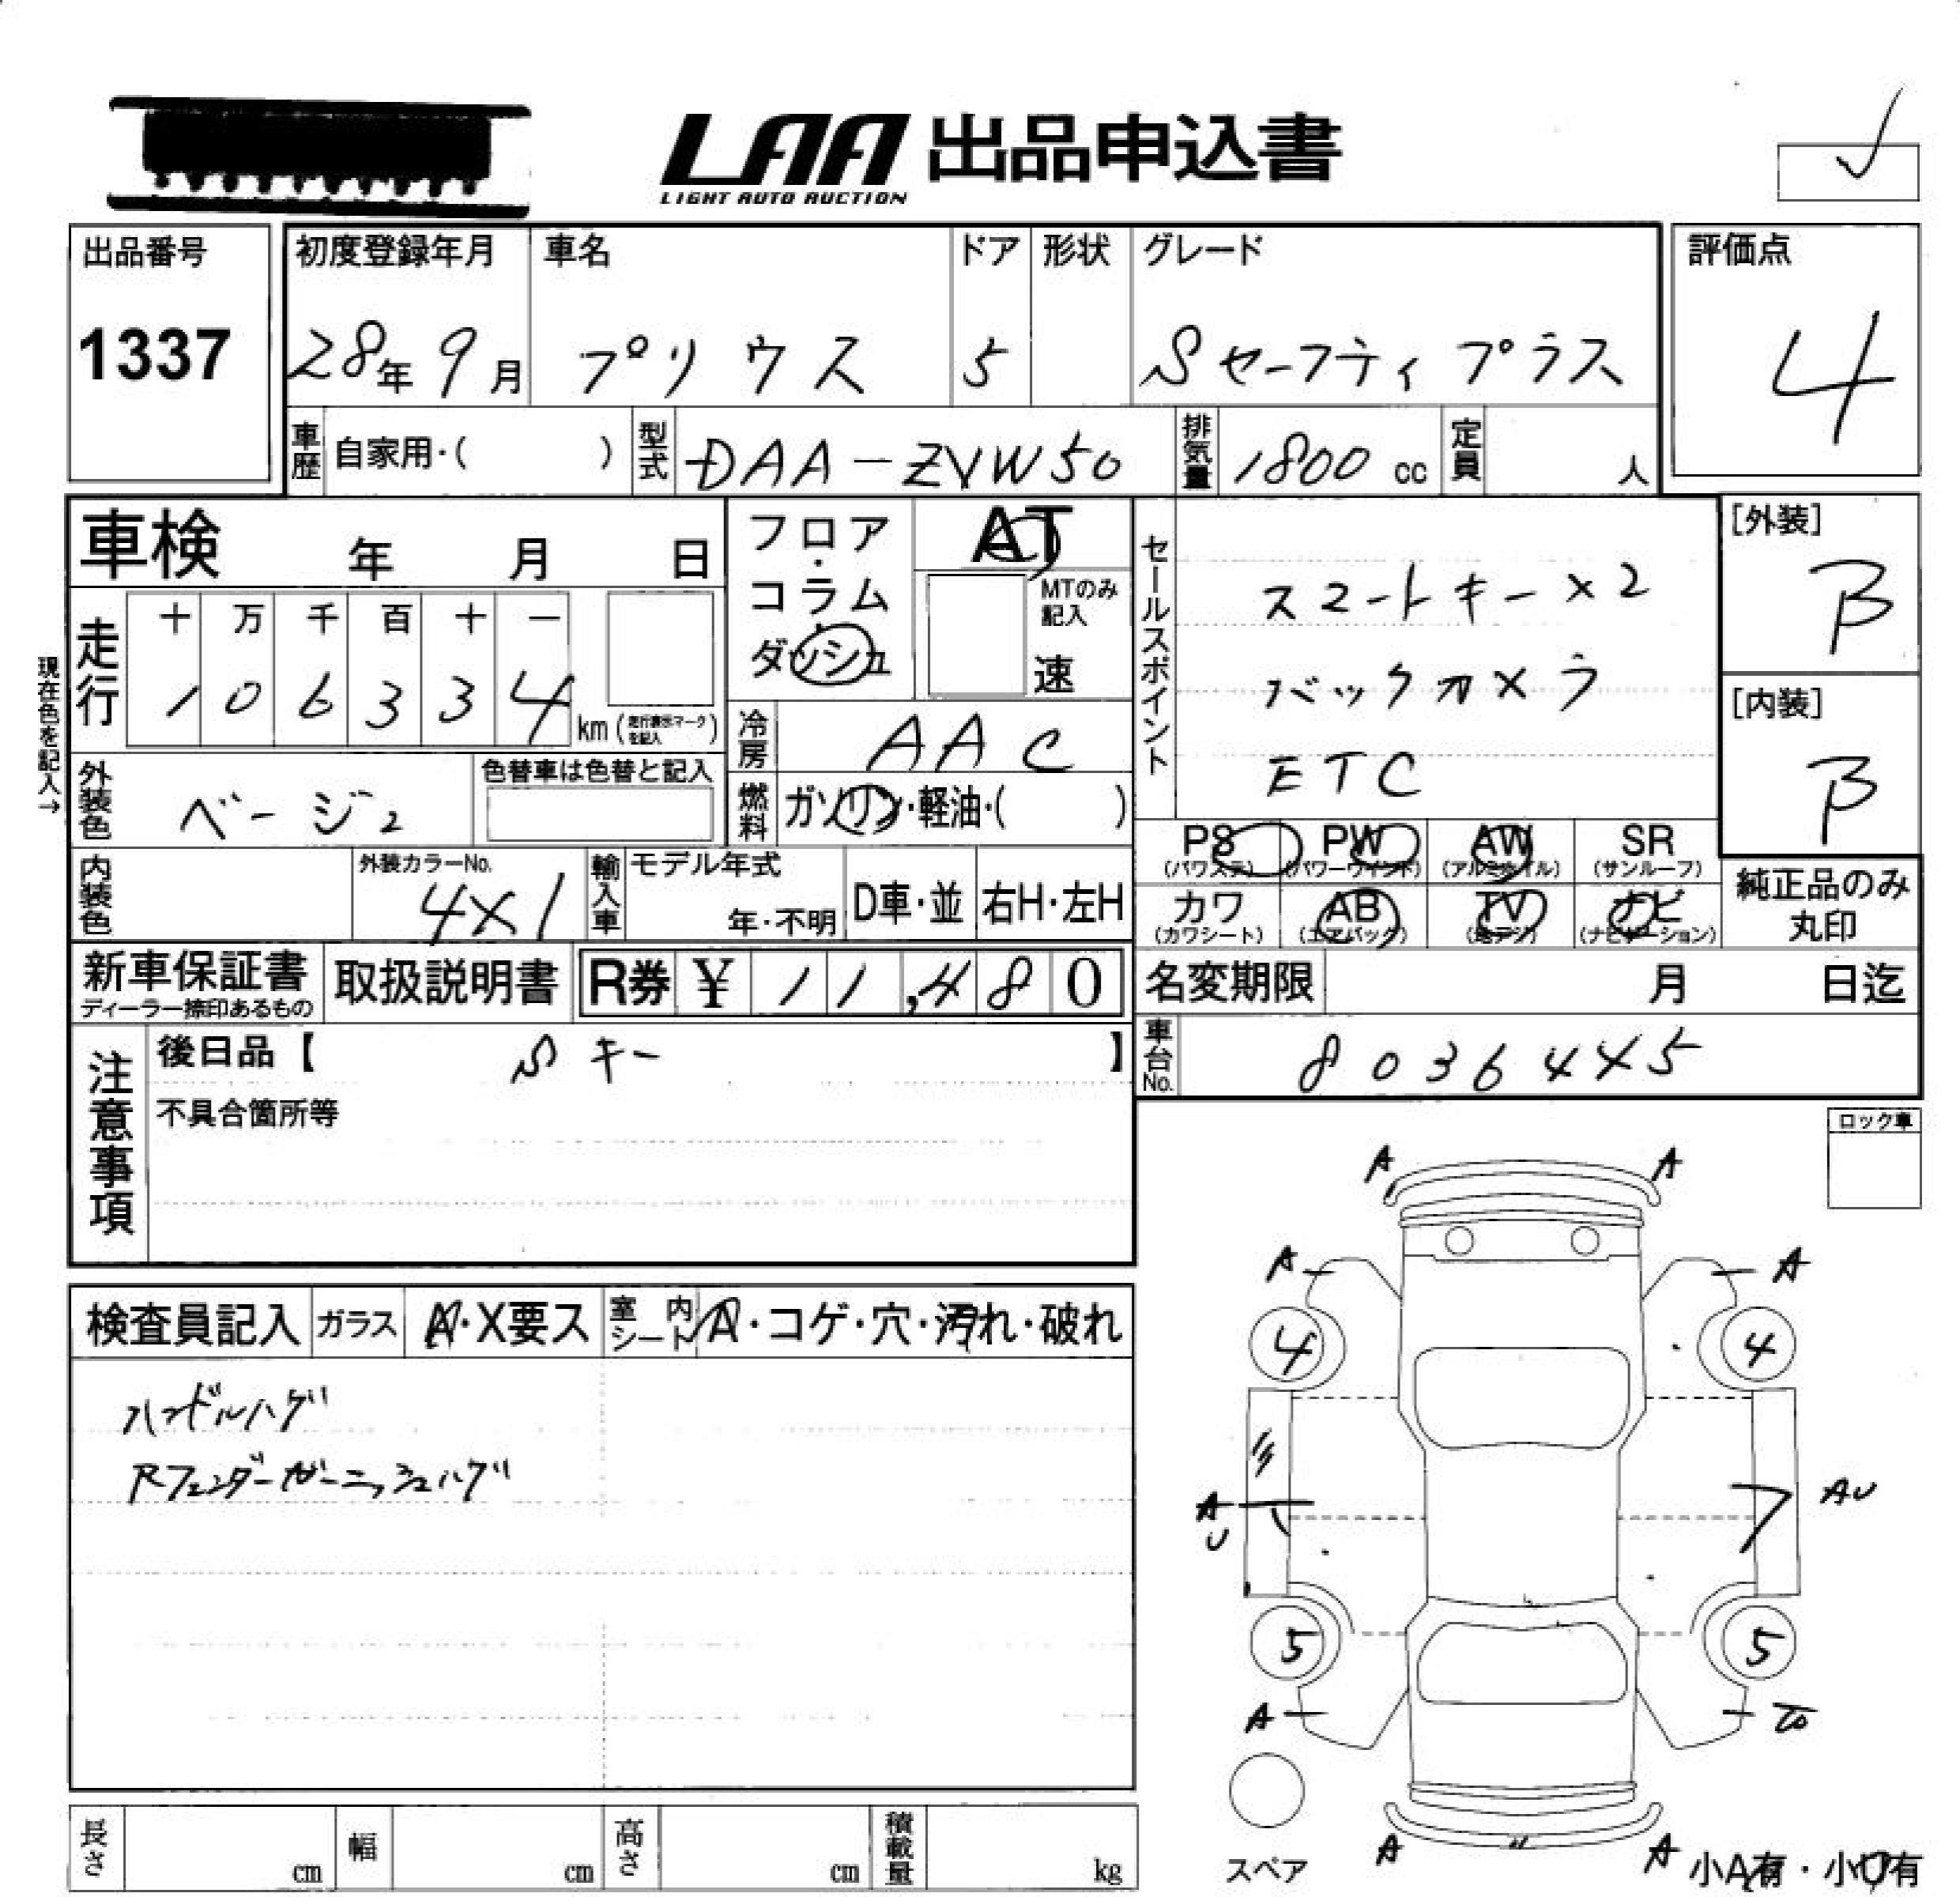 LAA 出品申込書
LIGHT AUTO AUCTION
出品番号
1337
初度登録年月
28年9月
車名
プリウス
ドア
5
形状
グレード
Sセーフティプラス
評価点
4
車歴 自家用・( )
型式 DAA-ZVW50
排気量 1800 cc
定員 人
車検 年 月 日
フロア・コラム・ダッシュ
AT
MTのみ記入
速
セールスポイント
スマートキー×2
バックカメラ
ETC
[外装]
B
[内装]
B
現在色を記入→
走行
十 万 千 百 十 一
1 0 6 3 3 4 km (走行表示マークを記入)
冷房 AAC
外装色 ベージュ
色替車は色替と記入
燃料 ガソリン・軽油・( )
PS (パワステ)
PW (パワーウインド)
AW (アルミホイル)
SR (サンルーフ)
カワ (カワシート)
AB (エアバック)
TV (地デジ)
ナビ (ナビゲーション)
純正品のみ丸印
内装色
外装カラーNo.
4X1
輸入車
モデル年式
年・不明
D車・並
右H・左H
新車保証書
ディーラー捺印あるもの
取扱説明書
R券 ¥ 11,480
名変期限 月 日迄
車台No. 8036445
注意事項
後日品【 Sキー 】
不具合箇所等
ロック車
検査員記入
ガラス A・X要ス
室内シート A・コゲ・穴・汚れ・破れ
ハンドルハゲ
Rフェンダーガーニッシュハゲ
A A
A A
4 4
AU AU
5 5
A
A A
スペア
小A有・小U有
長さ cm
幅 cm
高さ cm
積載量 kg